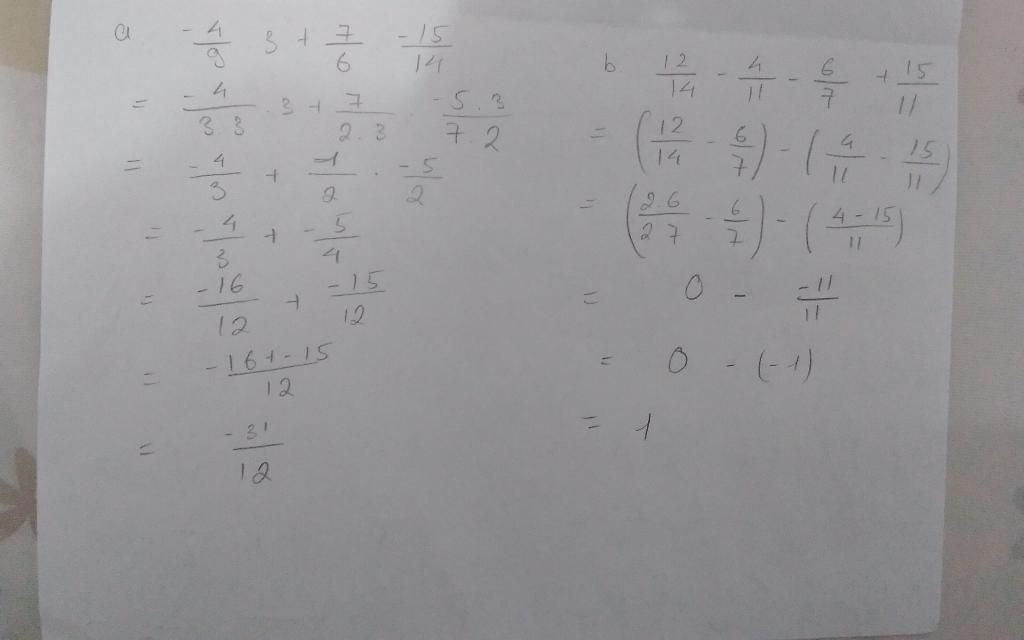 a -4/9 3 + 7/6 -15/14
= -4/3.3 . 3 + 7/2.3 . -5.3/7.2
= -4/3 + 1/2 . -5/2
= -4/3 + -5/4
= -16/12 + -15/12
= -16+-15/12
= -31/12
b 12/14 - 4/11 - 6/7 + 15/11
= (12/14 - 6/7) - (4/11 - 15/11)
= (2.6/2 7 - 6/7) - (4-15/11)
= 0 - -11/11
= 0 - (-1)
= 1